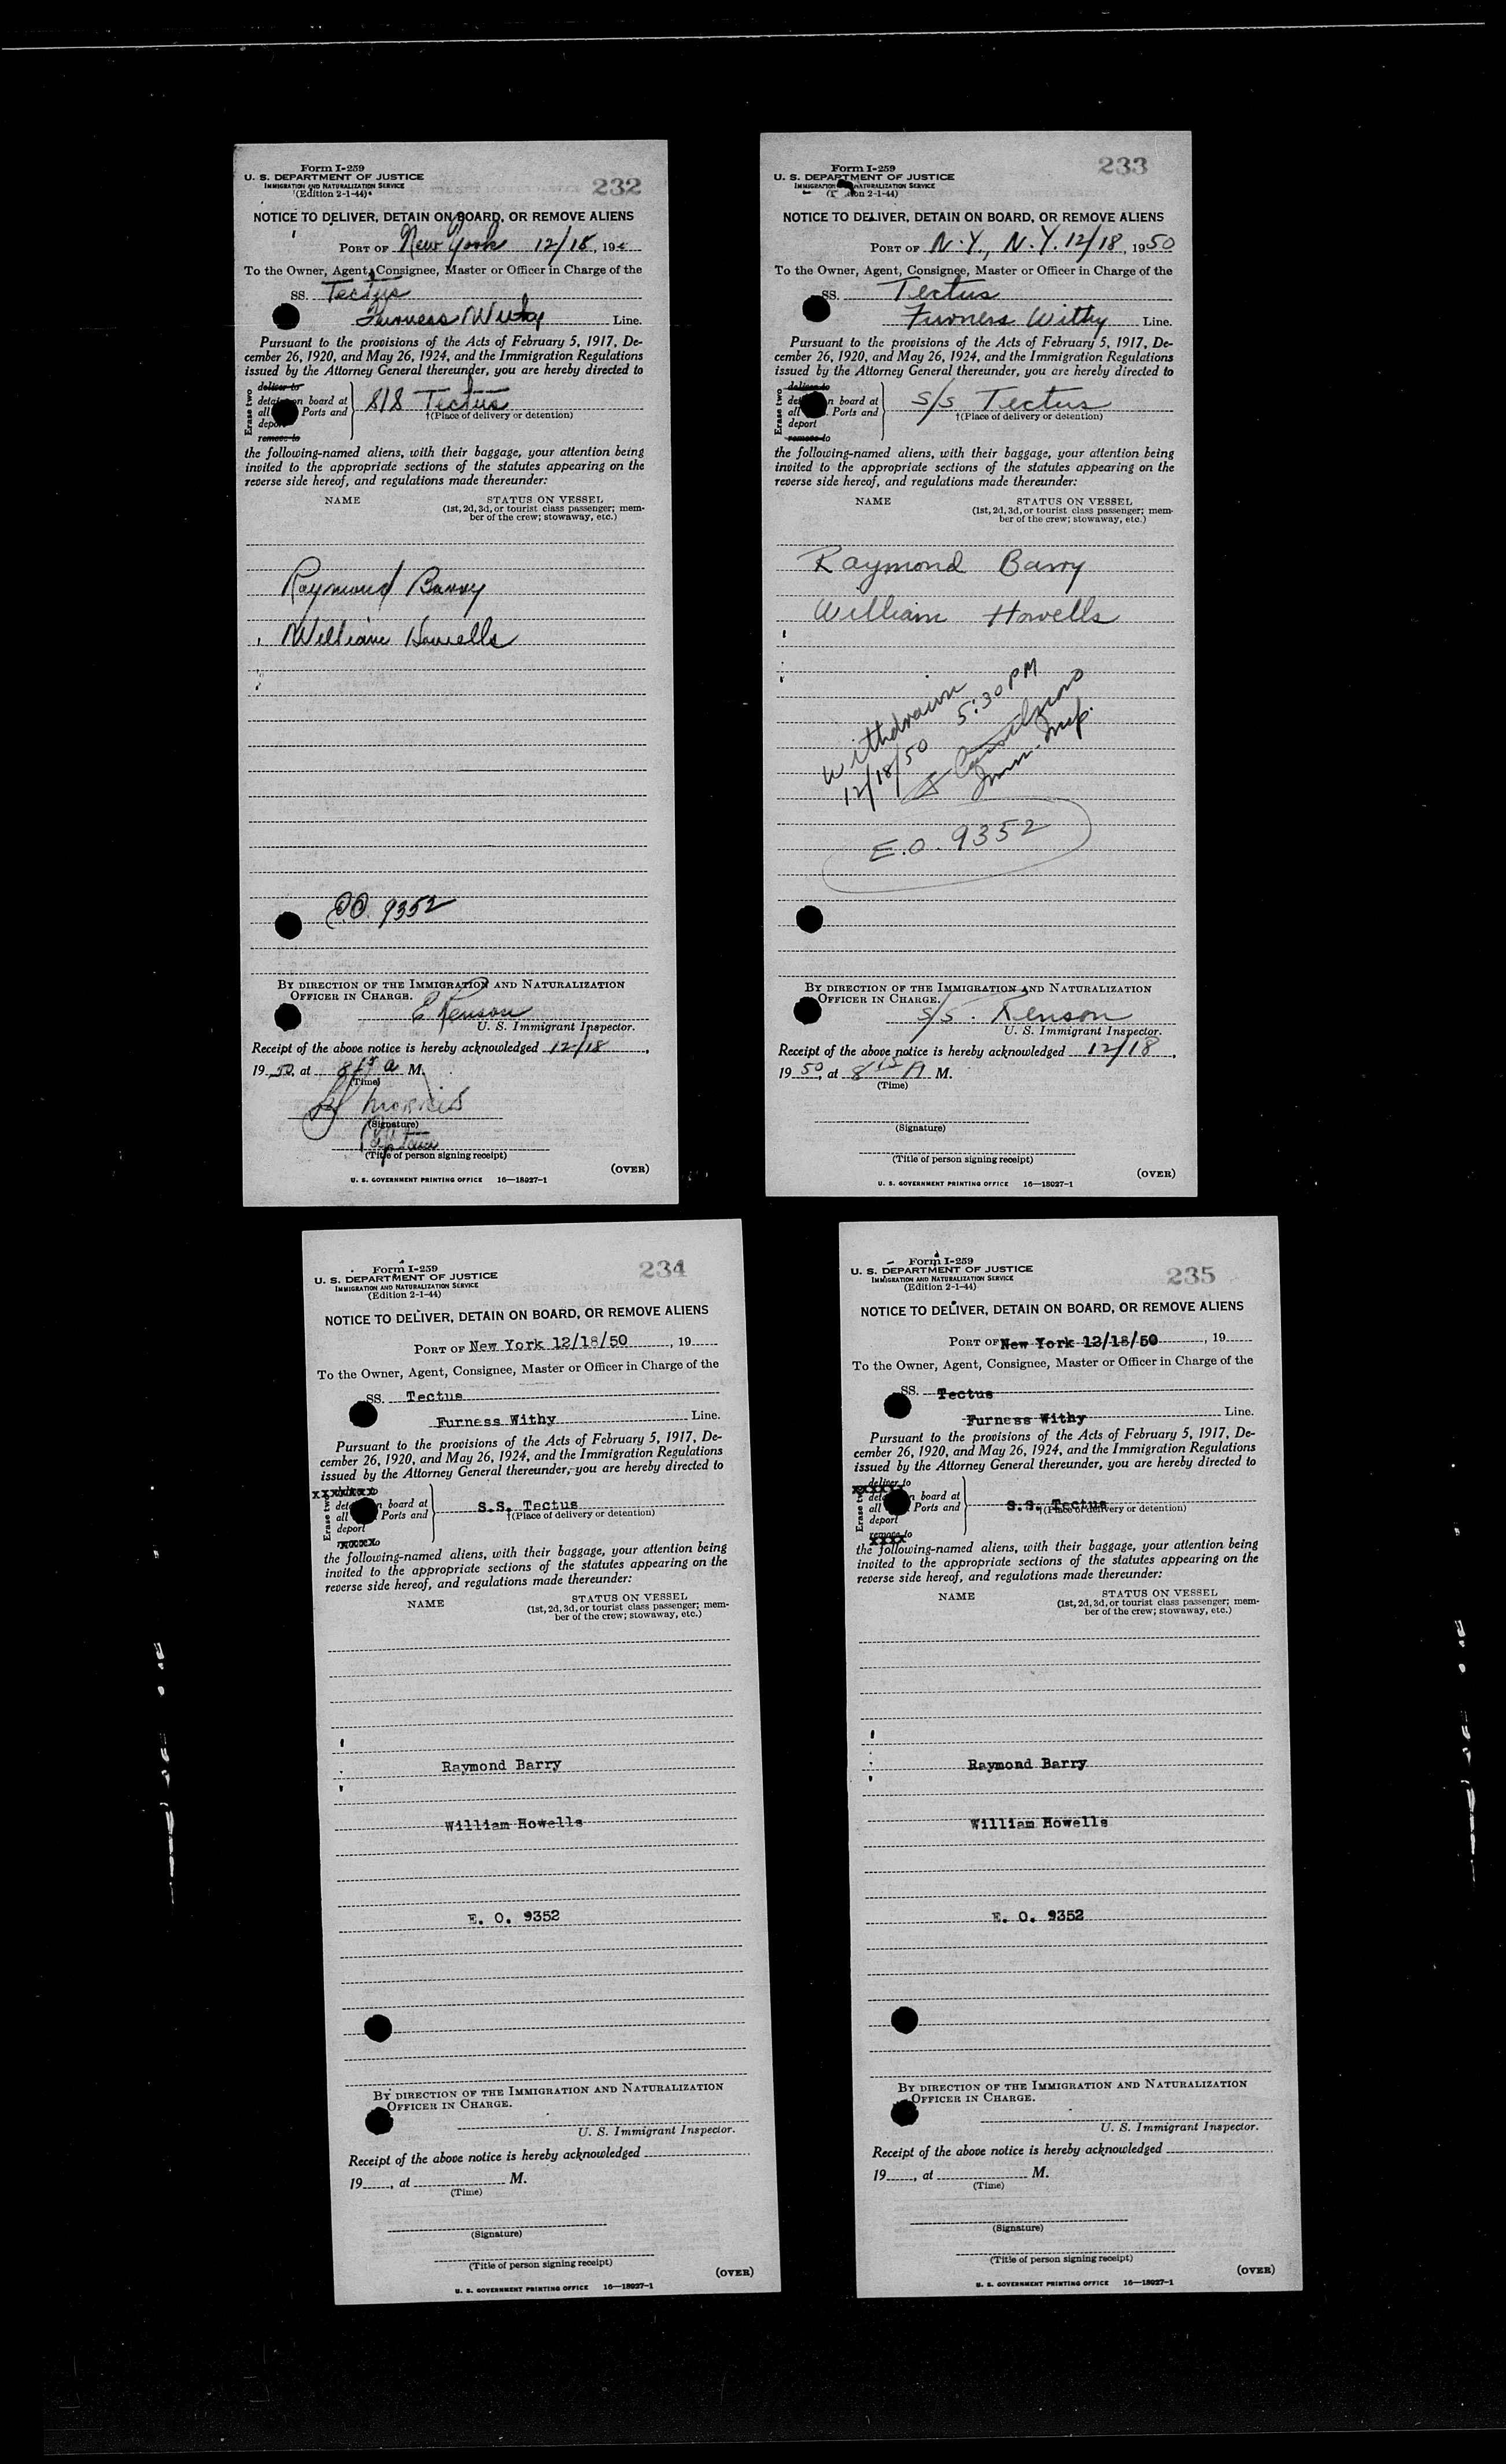 Form I-259
U. S. DEPARTMENT OF JUSTICE
IMMIGRATION AND NATURALIZATION SERVICE
(Edition 2-1-44)
232
NOTICE TO DELIVER, DETAIN ON BOARD, OR REMOVE ALIENS
PORT OF New York 12/18, 19
To the Owner, Agent, Consignee, Master or Officer in Charge of the
SS. Tectus
Furness Withy Line.
Pursuant to the provisions of the Acts of February 5, 1917, De-
cember 26, 1920, and May 26, 1924, and the Immigration Regulations
issued by the Attorney General thereunder, you are hereby directed to
Erase two
deliver to
detain on board at
all Ports and
deport
remove to
S/S Tectus
†(Place of delivery or detention)
the following-named aliens, with their baggage, your attention being
invited to the appropriate sections of the statutes appearing on the
reverse side hereof, and regulations made thereunder:
NAME STATUS ON VESSEL
(1st, 2d, 3d, or tourist class passenger; mem-
ber of the crew; stowaway, etc.)
Raymond Barry
William Howells
EO 9352
BY DIRECTION OF THE IMMIGRATION AND NATURALIZATION
OFFICER IN CHARGE.
E Renson
U. S. Immigrant Inspector.
Receipt of the above notice is hereby acknowledged 12/18,
19 50, at 8 15 a M.
(Time)
Morris
(Signature)
Captain
(Title of person signing receipt)
(OVER)
U. S. GOVERNMENT PRINTING OFFICE 16—18027-1
Form I-259
U. S. DEPARTMENT OF JUSTICE
IMMIGRATION NATURALIZATION SERVICE
233
NOTICE TO DELIVER, DETAIN ON BOARD, OR REMOVE ALIENS
PORT OF N.Y., N.Y. 12/18, 1950
To the Owner, Agent, Consignee, Master or Officer in Charge of the
SS. Tectus
Furness Withy Line.
Pursuant to the provisions of the Acts of February 5, 1917, De-
cember 26, 1920, and May 26, 1924, and the Immigration Regulations
issued by the Attorney General thereunder, you are hereby directed to
Erase two
deliver to
detain on board at
all Ports and
deport
remove to
S/S Tectus
†(Place of delivery or detention)
the following-named aliens, with their baggage, your attention being
invited to the appropriate sections of the statutes appearing on the
reverse side hereof, and regulations made thereunder:
NAME STATUS ON VESSEL
(1st, 2d, 3d, or tourist class passenger; mem-
ber of the crew; stowaway, etc.)
Raymond Barry
William Howells
Withdrawn
12/18/50 5:30 PM
Imm. Insp.
E.O. 9352
BY DIRECTION OF THE IMMIGRATION AND NATURALIZATION
OFFICER IN CHARGE.
S/S. Renson
U. S. Immigrant Inspector.
Receipt of the above notice is hereby acknowledged 12/18,
19 50, at 8 15 A M.
(Time)
(Signature)
(Title of person signing receipt)
(OVER)
U. S. GOVERNMENT PRINTING OFFICE 16—18027-1
Form I-259
U. S. DEPARTMENT OF JUSTICE
IMMIGRATION AND NATURALIZATION SERVICE
(Edition 2-1-44)
234
NOTICE TO DELIVER, DETAIN ON BOARD, OR REMOVE ALIENS
PORT OF New York 12/18/50, 19
To the Owner, Agent, Consignee, Master or Officer in Charge of the
SS. Tectus
Furness Withy Line.
Pursuant to the provisions of the Acts of February 5, 1917, De-
cember 26, 1920, and May 26, 1924, and the Immigration Regulations
issued by the Attorney General thereunder, you are hereby directed to
Erase two
detain on board at
all Ports and
deport
S.S. Tectus
†(Place of delivery or detention)
the following-named aliens, with their baggage, your attention being
invited to the appropriate sections of the statutes appearing on the
reverse side hereof, and regulations made thereunder:
NAME STATUS ON VESSEL
(1st, 2d, 3d, or tourist class passenger; mem-
ber of the crew; stowaway, etc.)
Raymond Barry
William Howells
E. O. 9352
BY DIRECTION OF THE IMMIGRATION AND NATURALIZATION
OFFICER IN CHARGE.
U. S. Immigrant Inspector.
Receipt of the above notice is hereby acknowledged
19, at M.
(Time)
(Signature)
(Title of person signing receipt)
(OVER)
U. S. GOVERNMENT PRINTING OFFICE 16—18027-1
Form I-259
U. S. DEPARTMENT OF JUSTICE
IMMIGRATION AND NATURALIZATION SERVICE
(Edition 2-1-44)
235
NOTICE TO DELIVER, DETAIN ON BOARD, OR REMOVE ALIENS
PORT OF New York 12/18/50, 19
To the Owner, Agent, Consignee, Master or Officer in Charge of the
SS. Tectus
Furness Withy Line.
Pursuant to the provisions of the Acts of February 5, 1917, De-
cember 26, 1920, and May 26, 1924, and the Immigration Regulations
issued by the Attorney General thereunder, you are hereby directed to
Erase two
deliver to
detain on board at
all Ports and
deport
remove to
S.S. Tectus
†(Place of delivery or detention)
the following-named aliens, with their baggage, your attention being
invited to the appropriate sections of the statutes appearing on the
reverse side hereof, and regulations made thereunder:
NAME STATUS ON VESSEL
(1st, 2d, 3d, or tourist class passenger; mem-
ber of the crew; stowaway, etc.)
Raymond Barry
William Howells
E. O. 9352
BY DIRECTION OF THE IMMIGRATION AND NATURALIZATION
OFFICER IN CHARGE.
U. S. Immigrant Inspector.
Receipt of the above notice is hereby acknowledged
19, at M.
(Time)
(Signature)
(Title of person signing receipt)
(OVER)
U. S. GOVERNMENT PRINTING OFFICE 16—18027-1